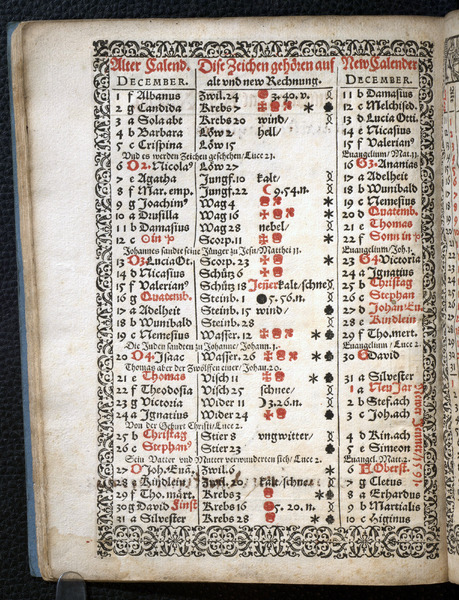 Alter Calend. Dise Zeichen gehören auf New Calender
DECEMBER. alt vnd new Rechnung. DECEMBER.
1 f Albanus Zwil. 24 3. 40. v. 11 b Damasus
2 g Candida Krebs 7 12 c Melchised.
3 a Sola abe Krebs 20 wind/ 13 d Lucia Otti.
4 b Barbara Löw 2 hell/ 14 e Nicasius
5 c Crispina Löw 15 15 f Valerian⁹
Vnd es werden Zeichen geschehen/ Luce 21. Euangelium/ Mat. 11.
6 D2. Nicola⁹ Löw 27 16 G3. Ananias
7 e Agatha Jungf. 10 kalt/ 17 a Adelheit
8 f Mar. emp. Jungf. 22 9. 54. n. 18 b Wunibald
9 g Joachim⁹ Wag 4 19 c Nemesius
10 a Drusilla Wag 16 20 d Quatemb.
11 b Damasius Wag 28 nebel/ 21 e Thomas
12 c Scorp. 11 22 f
Johannes sandte seine Jünger zu Jesu/ Matthei 11. Euangelium/ Joh. 1.
13 D3 Lucia Ot. Scorp. 23 23 G4 Victoria
14 d Nicasius Schütz 6 24 a Ignatius
15 f Valerian⁹ Schütz 18 kalt/schnee 25 b Christag
16 g Quatemb. Steinb. 1 5. 56. n. 26 c Stephan
17 a Adelheit Steinb. 15 wind/ 27 d Johan Eu.
18 b Wunibald Steinb. 28 28 e Kindlein
19 c Nemesius Wasser. 12 29 f Tho. mert.
Die Juden sandten zu Johanne/ Johann. 1. Euangelium/ Luce 2.
20 D4. Isaac Wasser. 26 30 G David
Thomas aber der Zwölffen einer/ Johan. 20.
21 e Thomas Visch 11 31 a Silvester
22 f Theodosia Visch 25 schnee/ 1 a New Jar
23 g Victoria Wider 11 3. 26. n. 2 b Stef. ach
24 a Ignatius Wider 24 3 c Joh. ach
Von der Geburt Christi/ Luce 2.
25 b Christag Stier 8 vngwitter/ 4 d Kin. ach
26 c Stephan⁹ Stier 23 5 e Simeon
Sein Vatter vnd Mutter verwunderten sich/ Luce 2. Euangel. Matt. 2.
27 D Joh. Eua. Zwil. 6 6 F Oberst.
28 e Kindlein Zwil. 20 kält/schnee 7 g Cletus
29 f Tho. mart. Krebs 3 8 a Erhardus
30 g David Krebs 16 5. 20. n. 9 b Martialis
31 a Silvester Krebs 28 10 c Higinus